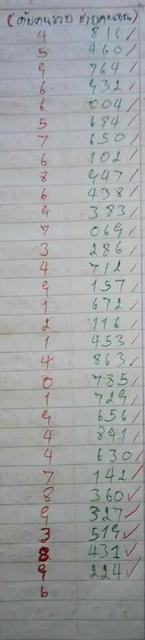 4 816/
5 460/
9 764/
6 932/
6 004/
5 684/
7 650/
6 102/
8 947/
6 438/
9 383/
7 069/
3 286/
4 712/
9 157/
1 672/
2 116/
1 453/
4 863/
0 785/
1 729/
9 656/
4 891/
4 630/
7 142/
8 360✓
9 327✓
3 519✓
8 431✓
9 224✓
6